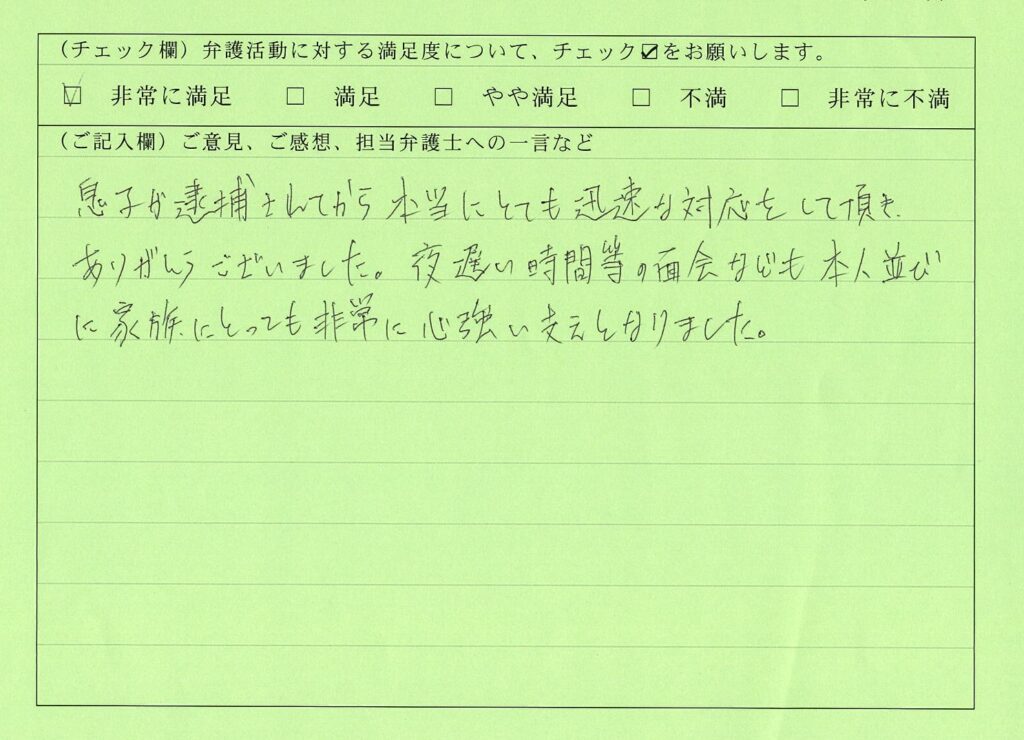 (チェック欄)弁護活動に対する満足度について、チェック☑をお願いします。
☑ 非常に満足 □ 満足 □ やや満足 □ 不満 □ 非常に不満
(ご記入欄)ご意見、ご感想、担当弁護士への一言など
息子が逮捕されてから本当にとても迅速な対応をして頂き、
ありがとうございました。夜遅い時間等の面会なども本人並び
に家族にとっても非常に心強い支えとなりました。